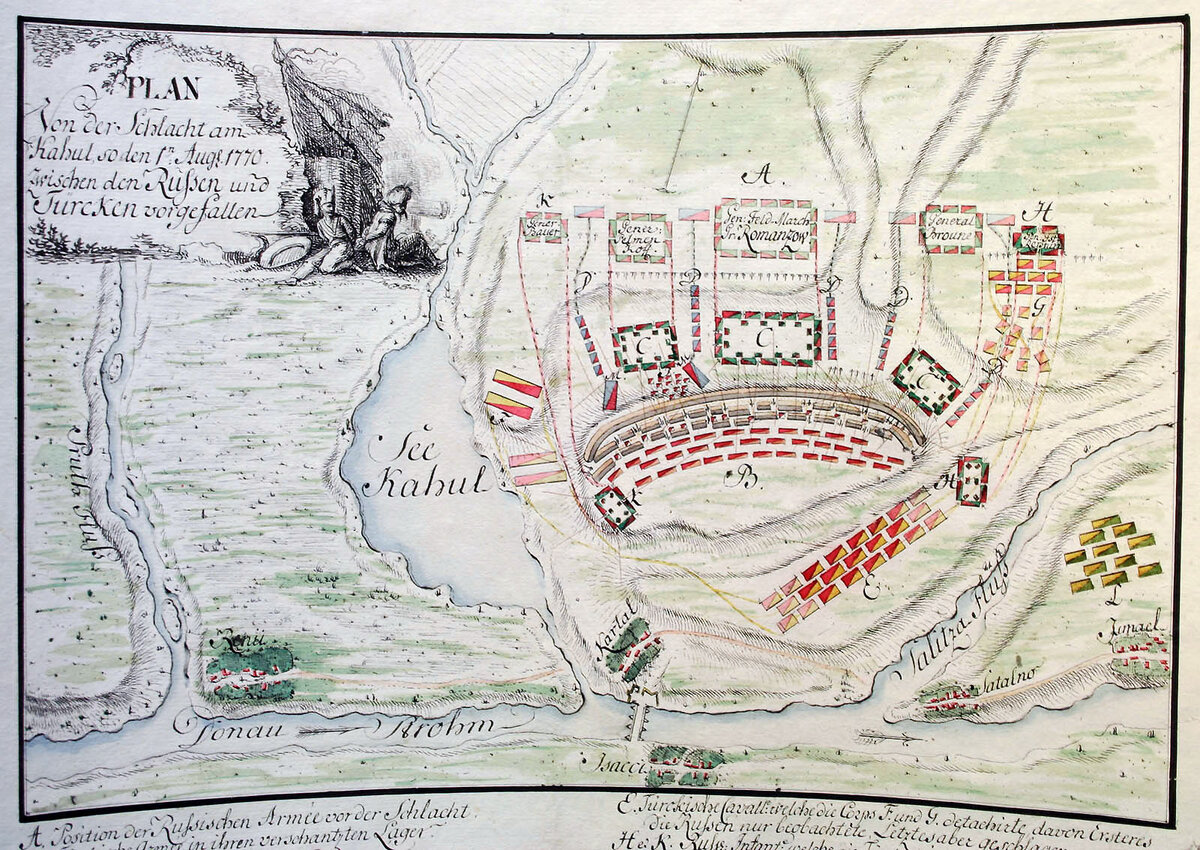 PLAN
Von der Schlacht am
Kahul, so den 1ten Augs. 1770.
zwischen den Rußen und
Turcken vorgefallen
K
A.
H
Gener:
Bauer
Gener:
Gen: Feld March
Gr: Romanzow
General
D
D
D
D
G
C
C
C
D
See
Kahul
B.
K
H
E
L
Pruth Fluß
Renu
Kartal
Jalitza Fluß
Satalno
Jsmael
Donau Strohm
Jsacci
A. Position der Rußischen Armée vor der Schlacht.
in ihren verschantzten Lager.
E. Türckische Cavall: welche die Corps F. und G. detachirte, davon Ersteres
die Rußen nur beobachtete, Letztes aber geschlagen
H et K. Russ: Infant: welche